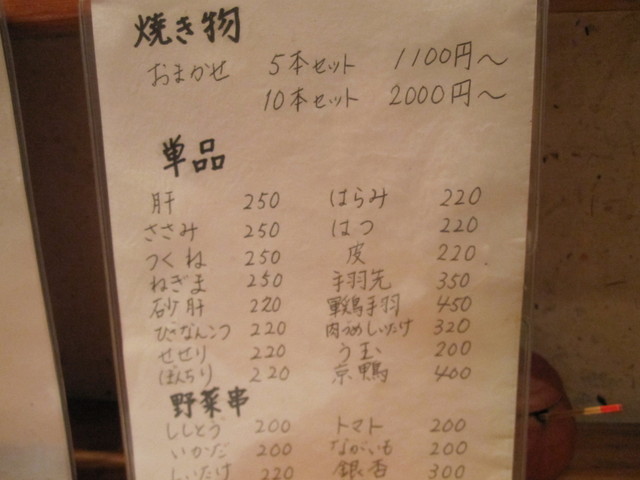 焼き物
おまかせ 5本セット 1100円～
10本セット 2000円～
単品
肝 250 はらみ 220
ささみ 250 はつ 220
つくね 250 皮 220
ねぎま 250 手羽先 350
砂肝 220 軍鶏手羽 450
ひざなんこつ 220 肉づめしいたけ 320
せせり 220 う玉 200
ぼんちり 220 京鴨 400
野菜串
ししとう 200 トマト 200
いかだ 200 ながいも 200
しいたけ 220 銀杏 300